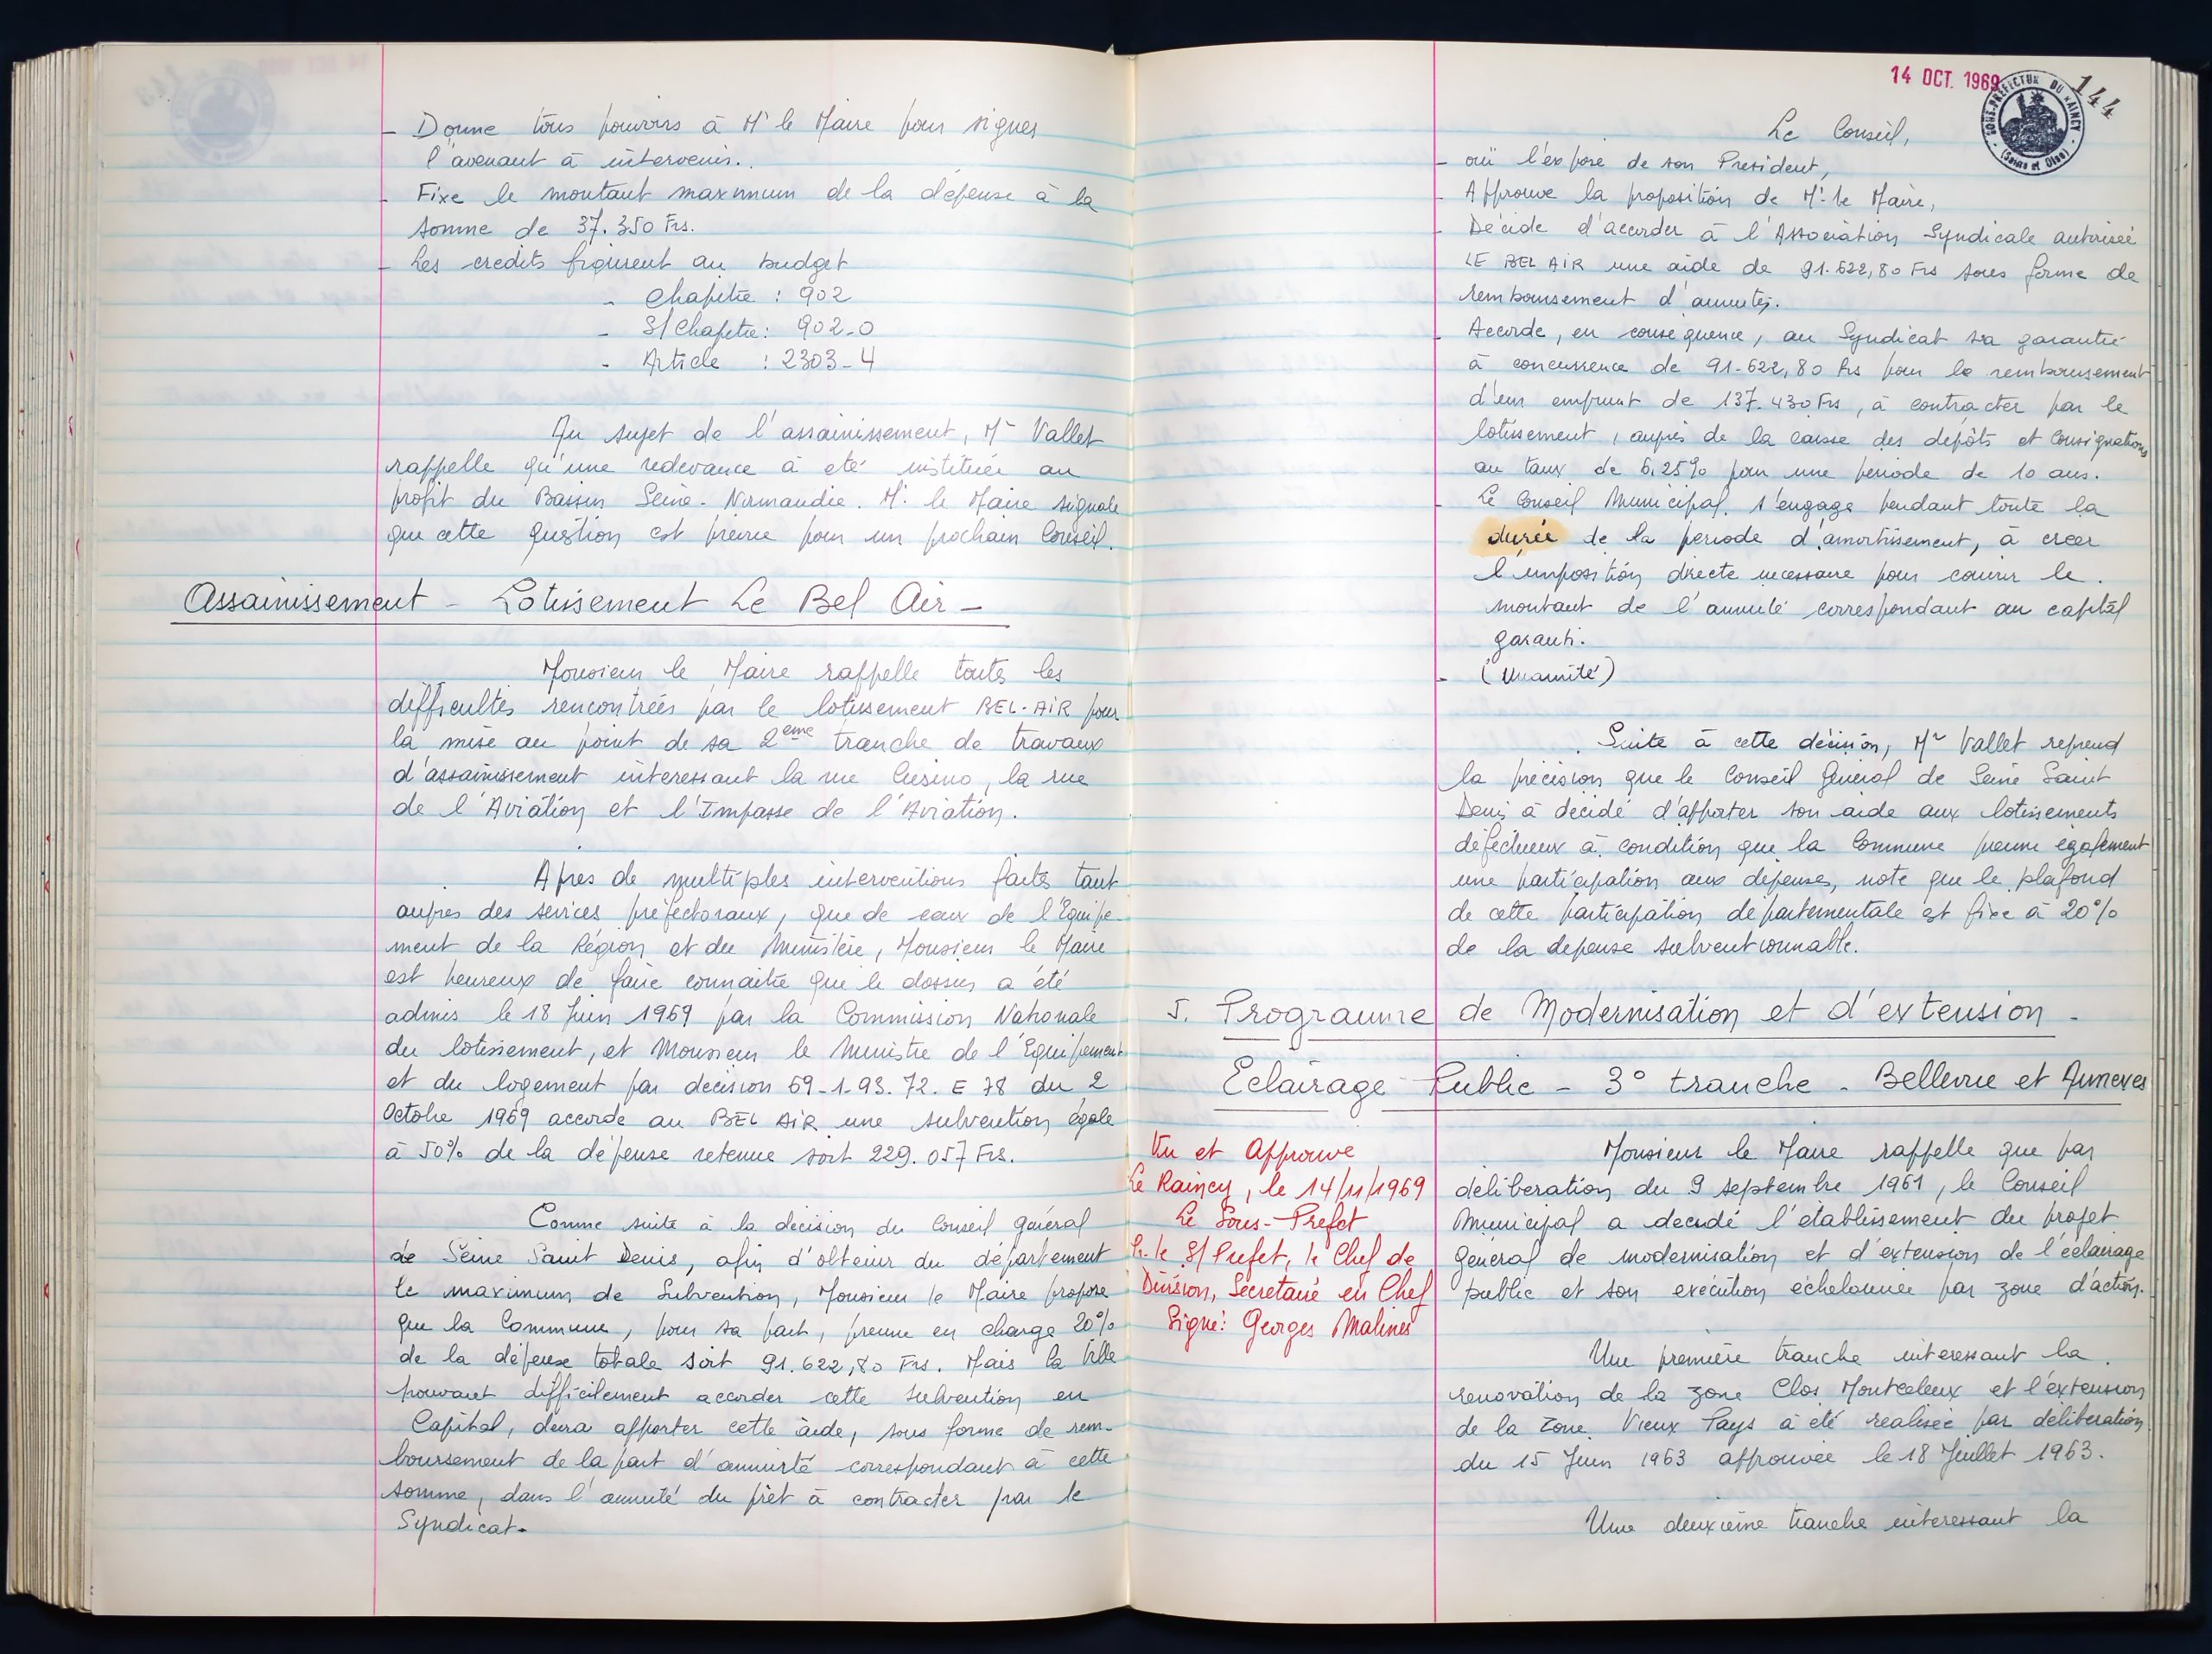 - Donne tous pouvoirs à Mr le Maire pour signer
l'avenant à intervenir.
- Fixe le montant maximum de la dépense à la
somme de 37.350 Frs.
- Les crédits figurent au budget
- Chapitre : 902
- S/Chapitre : 902-0
- Article : 2303-4
Au sujet de l'assainissement, Mr Vallet
rappelle qu'une redevance a été instituée au
profit du Bassin Seine-Normandie. Mr le Maire signale
que cette question est prévue pour un prochain Conseil.
Assainissement - Lotissement Le Bel Air -
Monsieur le Maire rappelle toutes les
difficultés rencontrées par le lotissement BEL-AIR pour
la mise au point de sa 2ème tranche de travaux
d'assainissement interessant la rue Cusino, la rue
de l'Aviation et l'Impasse de l'Aviation.
Apres de multiples interventions faites tant
aupres des services préfectoraux, que de ceux de l'Equipe-
ment de la Région et du Ministère, Monsieur le Maire
est heureux de faire connaitre que le dossier a été
admis le 18 Juin 1969 par la Commission Nationale
du lotissement, et Monsieur le Ministre de l'Equipement
et du logement par decision 69-1-93.72.E 78 du 2
Octobre 1969 accorde au BEL AIR une subvention égale
à 50% de la dépense retenue soit 229.057 Frs.
Comme suite à la décision du Conseil général
de Seine Saint Denis, afin d'obtenir du département
le maximum de Subvention, Monsieur le Maire propose
que la Commune, pour sa part, prenne en charge 20%
de la dépense totale soit 91.622,80 Frs. Mais la Ville
pouvant difficilement accorder cette subvention en
Capital, devra apporter cette aide, sous forme de rem-
boursement de la part d'annuité correspondant à cette
somme, dans l'annuité du prêt à contracter par le
Syndicat.
14 OCT. 1969
144
SOUS-PREFECTURE DU RAINCY
(Seine et Oise)
Le Conseil,
- ouï l'exposé de son President,
- Approuve la proposition de Mr le Maire,
- Décide d'accorder à l'Association Syndicale autorisée
LE BEL AIR une aide de 91.622,80 Frs sous forme de
remboursement d'annuités.
- Accorde, en conséquence, au Syndicat sa garantie
à concurrence de 91.622,80 Frs pour le remboursement
d'un emprunt de 137.430 Frs, à contracter par le
lotissement, auprès de la caisse des depôts et Consignations
au taux de 6,25% pour une periode de 10 ans.
- Le Conseil Municipal s'engage pendant toute la
durée de la periode d'amortissement, à creer
l'imposition directe necessaire pour couvrir le
montant de l'annuité correspondant au capital
garanti.
- (Unanimité)
Suite à cette décision, Mr Vallet reprend
la précision que le Conseil Général de Seine Saint
Denis a décidé d'apporter son aide aux lotissements
défectueux à condition que la Commune prenne également
une participation aux dépenses, note que le plafond
de cette participation départementale est fixé à 20%
de la depense subventionnable.
5. Programme de Modernisation et d'extension -
Eclairage Public - 3° tranche - Bellevue et Annexes
Vu et Approuvé
Le Raincy, le 14/11/1969
Le Sous-Prefet
P. le S/Prefet, le Chef de
Division, Secretaire en Chef
Signé : Georges Malines
Monsieur le Maire rappelle que par
déliberation du 9 septembre 1961, le Conseil
Municipal a decidé l'etablissement du projet
général de modernisation et d'extension de l'éclairage
public et son exécution échelonnée par zone d'action.
Une première tranche interessant la
renovation de la zone Clos Montceleux et l'extension
de la zone Vieux Pays a été réalisée par déliberation
du 15 Juin 1963 approuvée le 18 Juillet 1963.
Une deuxième tranche interessant la